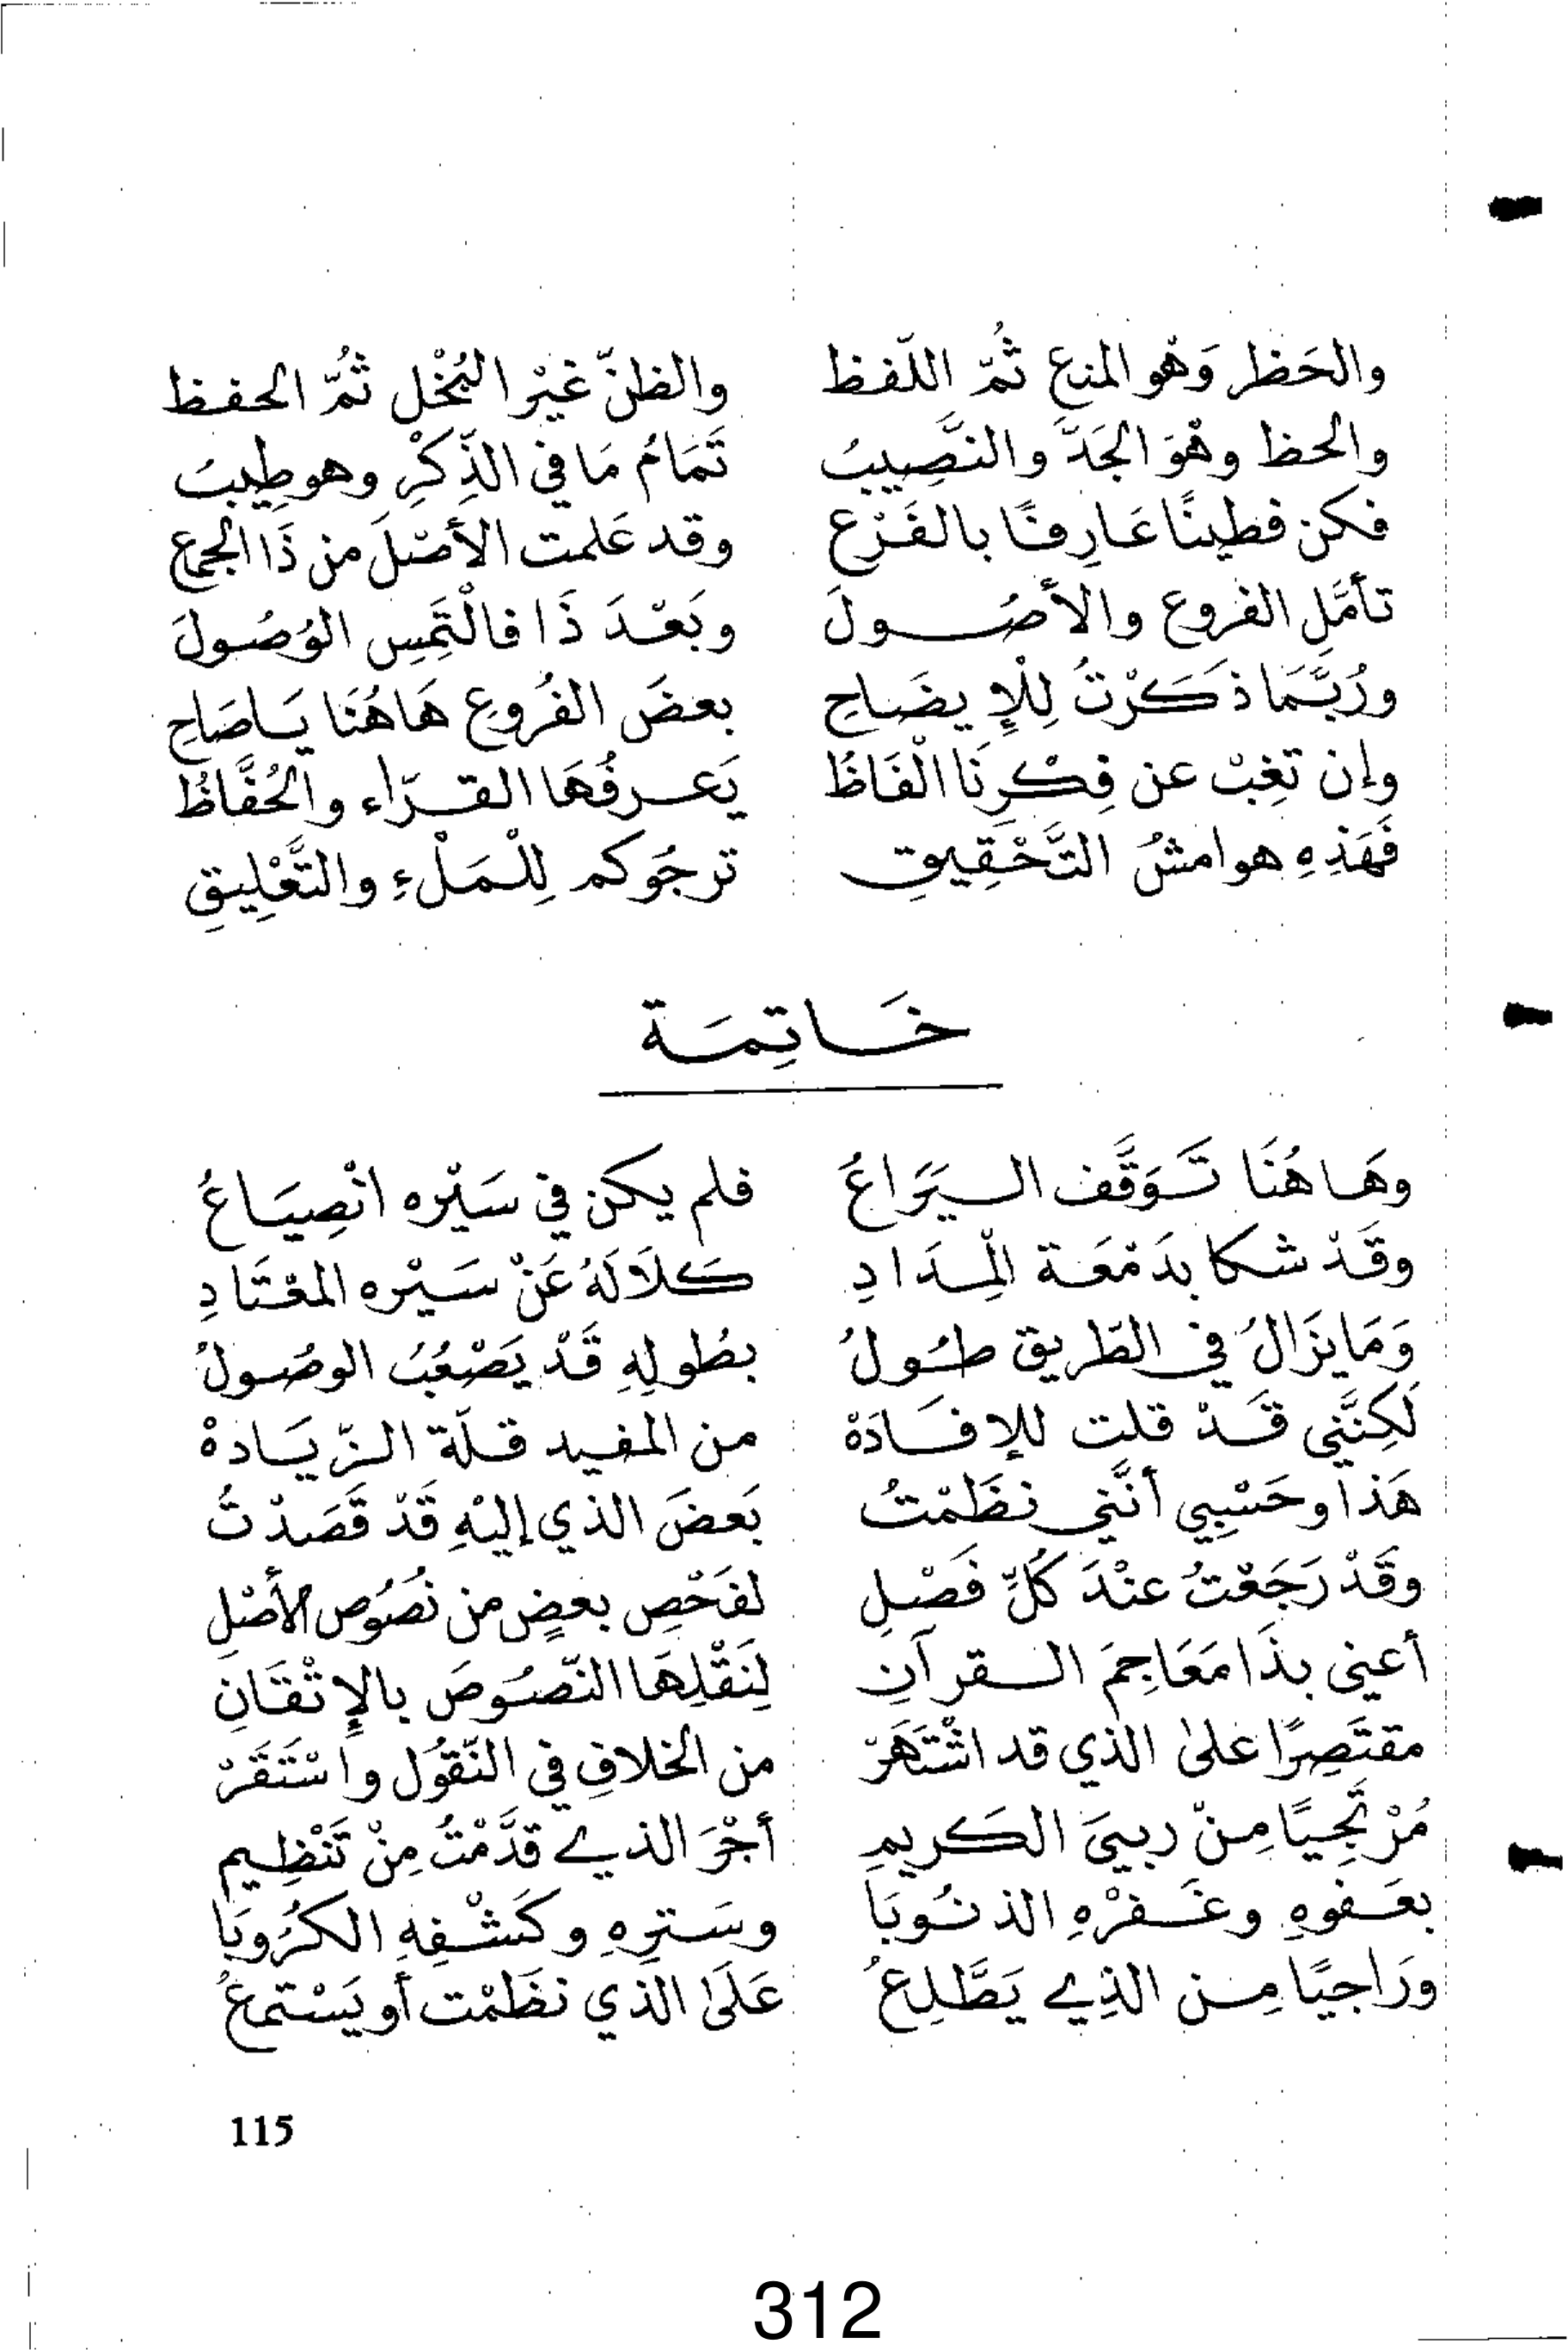 والحَظر وَهْو المنع ثُمّ اللّفظ والظنّ غيْر البُخْل ثمُّ الحفظ
والحظ وهْوَ الجَدّ والنَّصِيبُ تَمَامُ مَا في الذِّكْرِ وهو طِيبُ
فكن فطينًا عَارِفًا بالفَرْع وقد عَلمت الأصْلَ من ذَا الجمع
تأمَّلِ الفروع والأصُولَ وبَعْدَ ذَا فالْتَمِسِ الوُصُولَ
ورُبَّمَا ذكَرْتُ لِلْإيضَاحِ بعضَ الفُروعِ هَاهُنَا يَاصَاحِ
وإن تغِبْ عن فِكْرِنَا الْفَاظُ يَعرفُهَا القرّاء والحُفَّاظُ
فَهَذِهِ هوامشُ التَّحْقِيقِ ترجُوكم لِلْمَلْءِ والتَّعْلِيقِ
خَاتِمَة
وهَاهُنَا تَوَقَّف اليَرَاعُ فلم يكن في سَيْره انْصِيَاعُ
وقَدْ شكا بدَمْعَة الْمِدَادِ كَلَالَهُ عَنْ سَيْره المعْتَادِ
وَمَا يَزَالُ في الطّريق طُولُ بطُولِهِ قَدْ يَصْعُبُ الوصُولُ
لَكِنَّنِي قَدْ قلت للإفَادَهْ من المفيد قلّة الزّيَادهْ
هَذا وحَسْبِي أنَّنِي نظَمْتُ بَعضَ الذي إليْهِ قَدْ قَصَدْتُ
وقَدْ رَجَعْتُ عنْدَ كُلِّ فَصْلِ لفَحْصِ بعضٍ من نُصُوص الأصْلِ
أعني بذَا مَعَاجِمَ القرآنِ لِنَقْلِهَا النّصُوصَ بالإتْقَانِ
مقتَصِرًا علىٰ الذي قد اشْتَهَرْ من الخلافِ في النّقُول واسْتَقَرْ
مُرْتَجِيًا مِنْ ربيَ الكَريمِ أجْرَ الذي قدَّمْتُ مِنْ تَنْظِيم
بعَفوهِ وغَفرْهِ الذنُوبَا وسَترِهِ وكَشْفِهِ الكرُوبَا
ورَاجيًا مِن الذِي يَطَّلِعُ عَلَىٰ الذي نظَمْت أو يَسْتمعُ
115
312